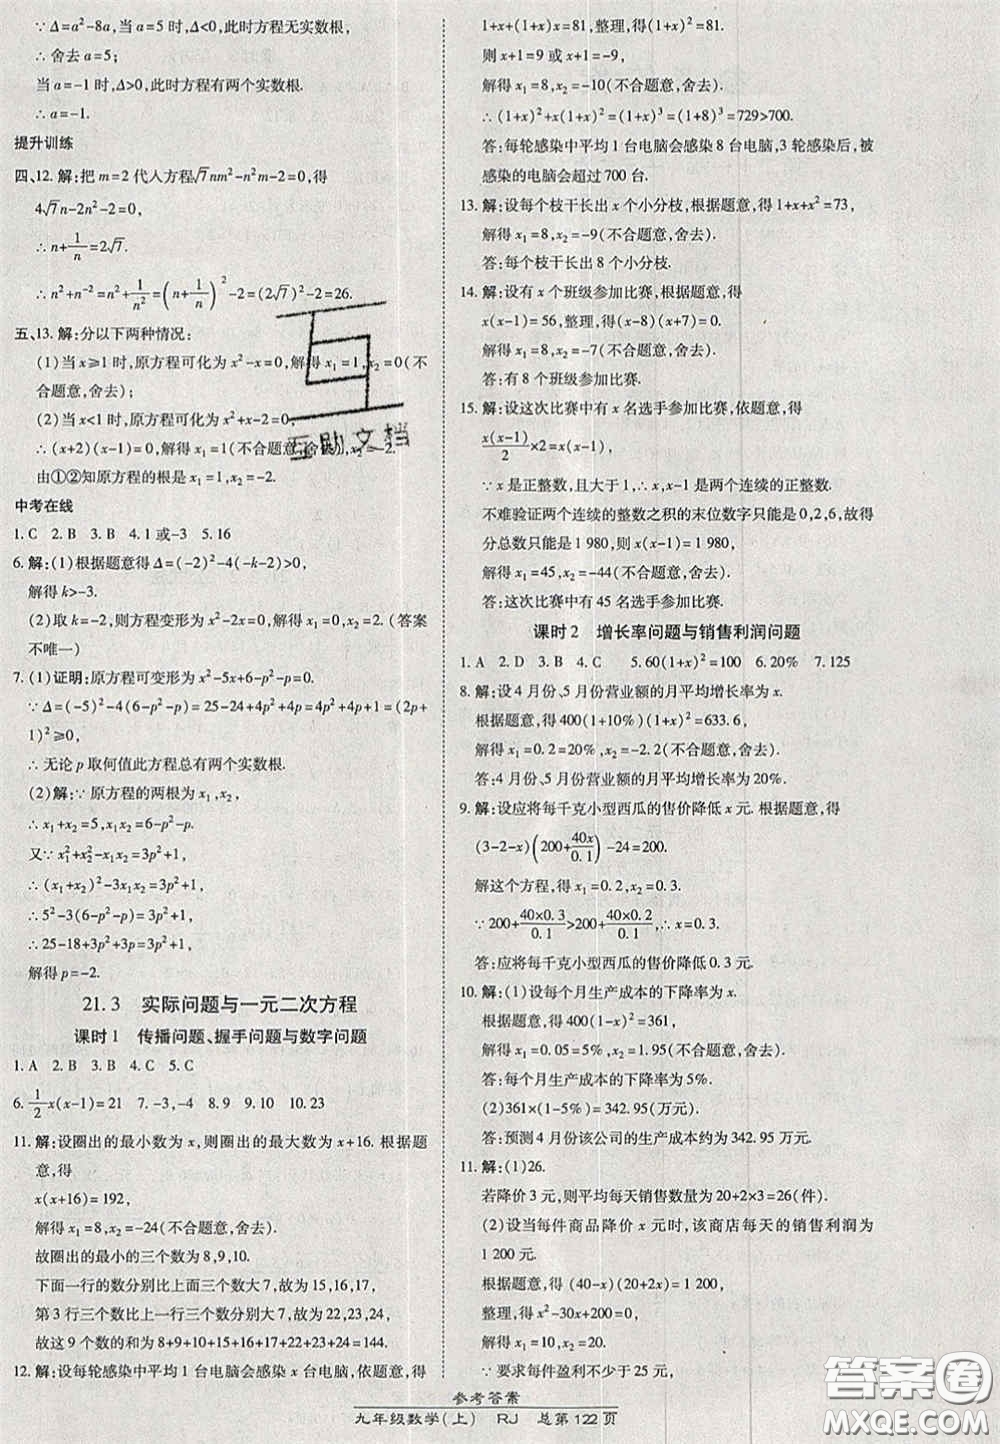 ∵Δ=a²-8a,当a=5时,Δ<0,此时方程无实数根,
∴舍去a=5;
当a=-1时,Δ>0,此时方程有两个实数根.
∴a=-1.
提升训练
四、12.解:把m=2代入方程√7nm²-n²m-2=0,得
4√7n-2n²-2=0,
∴n+1/n=2√7.
∴n²+n⁻²=n²+1/n²=(n+1/n)²-2=(2√7)²-2=26.
五、13.解:分以下两种情况:
(1)当x≥1时,原方程可化为x²-x=0,解得x₁=1,x₂=0(不
合题意,舍去);
(2)当x<1时,原方程可化为x²+x-2=0,
∴(x+2)(x-1)=0,解得x₁=1(不合题意,舍去),x₂=-2.
由①②知原方程的根为x₁=1,x₂=-2.
中考在线
1.C 2.B 3.B 4.1或-3 5.16
6.解:(1)根据题意得Δ=(-2)²-4(-k-2)>0,
解得k>-3.
(2)取k=-2,则方程变形为x²-2x=0,解得x₁=0,x₂=2.(答案
不唯一)
7.(1)证明:原方程可变形为x²-5x+6-p²-p=0.
∵Δ=(-5)²-4(6-p²-p)=25-24+4p²+4p=4p²+4p+1=(2p+
1)²≥0,
∴无论p取何值此方程总有两个实数根.
(2)解:∵原方程的两根为x₁,x₂,
∴x₁+x₂=5,x₁x₂=6-p²-p.
又∵x₁²+x₂²-x₁x₂=3p²+1,
∴(x₁+x₂)²-3x₁x₂=3p²+1,
∴5²-3(6-p²-p)=3p²+1,
∴25-18+3p²+3p=3p²+1,
解得p=-2.
21.3 实际问题与一元二次方程
课时1 传播问题、握手问题与数字问题
1.A 2.B 3.B 4.C 5.C
6.1/2x(x-1)=21 7.-3,-4 8.9 9.10 10.23
11.解:设圈出的最小数为x,则圈出的最大数为x+16.根据题
意,得
x(x+16)=192,
解得x₁=8,x₂=-24(不合题意,舍去).
故圈出的最小的三个数为8,9,10.
下面一行的数分别比上面三个数大7,故为15,16,17,
第3行三个数比上一行三个数分别大7,故为22,23,24,
故这9个数的和为8+9+10+15+16+17+22+23+24=144.
12.解:设每轮感染中平均1台电脑会感染x台电脑,依题意,得
1+x+(1+x)x=81,整理,得(1+x)²=81.
则x+1=9或x+1=-9,
解得x₁=8,x₂=-10(不合题意,舍去),
∴(1+x)²+x(1+x)²=(1+x)³=(1+8)³=729>700.
答:每轮感染中平均1台电脑会感染8台电脑,3轮感染后,被
感染的电脑会超过700台.
13.解:设每个枝干长出x个小分枝,根据题意,得1+x+x²=73,
解得x₁=8,x₂=-9(不合题意,舍去).
答:每个枝干长出8个小分枝.
14.解:设有x个班级参加比赛,根据题意,得
x(x-1)=56,整理,得(x-8)(x+7)=0.
解得x₁=8,x₂=-7(不合题意,舍去).
答:有8个班级参加比赛.
15.解:设这次比赛中有x名选手参加比赛,依题意,得
x(x-1)/2×2=x(x-1).
∵x是正整数,且大于1,∴x,x-1是两个连续的正整数.
不难验证两个连续的整数之积的末位数字只能是0,2,6,故得
分总数只能是1 980,则x(x-1)=1 980,
解得x₁=45,x₂=-44(不合题意,舍去).
答:这次比赛中有45名选手参加比赛.
课时2 增长率问题与销售利润问题
1.A 2.D 3.B 4.C 5.60(1+x)²=100 6.20% 7.125
8.解:设4月份、5月份营业额的月平均增长率为x.
根据题意,得400(1+10%)(1+x)²=633.6,
解得x₁=0.2=20%,x₂=-2.2(不合题意,舍去).
答:4月份、5月份营业额的月平均增长率为20%.
9.解:设应将每千克小型西瓜的售价降低x元.根据题意,得
(3-2-x)(200+40x/0.1)-24=200.
解这个方程,得x₁=0.2,x₂=0.3.
∵200+40×0.3/0.1>200+40×0.2/0.1,∴x=0.3.
答:应将每千克小型西瓜的售价降低0.3元.
10.解:(1)设每个月生产成本的下降率为x.
根据题意,得400(1-x)²=361,
解得x₁=0.05=5%,x₂=1.95(不合题意,舍去).
答:每个月生产成本的下降率为5%.
(2)361×(1-5%)=342.95(万元).
答:预测4月份该公司的生产成本约为342.95万元.
11.解:(1)26.
若降价3元,则平均每天销售数量为20+2×3=26(件).
(2)设当每件商品降价x元时,该商店每天的销售利润为
1 200元.
根据题意,得(40-x)(20+2x)=1 200,
整理,得x²-30x+200=0,
解得x₁=10,x₂=20.
∵要求每件盈利不少于25元,
参考答案
九年级数学(上) RJ 总第122页
互助文档
答案圈
MXQE.COM